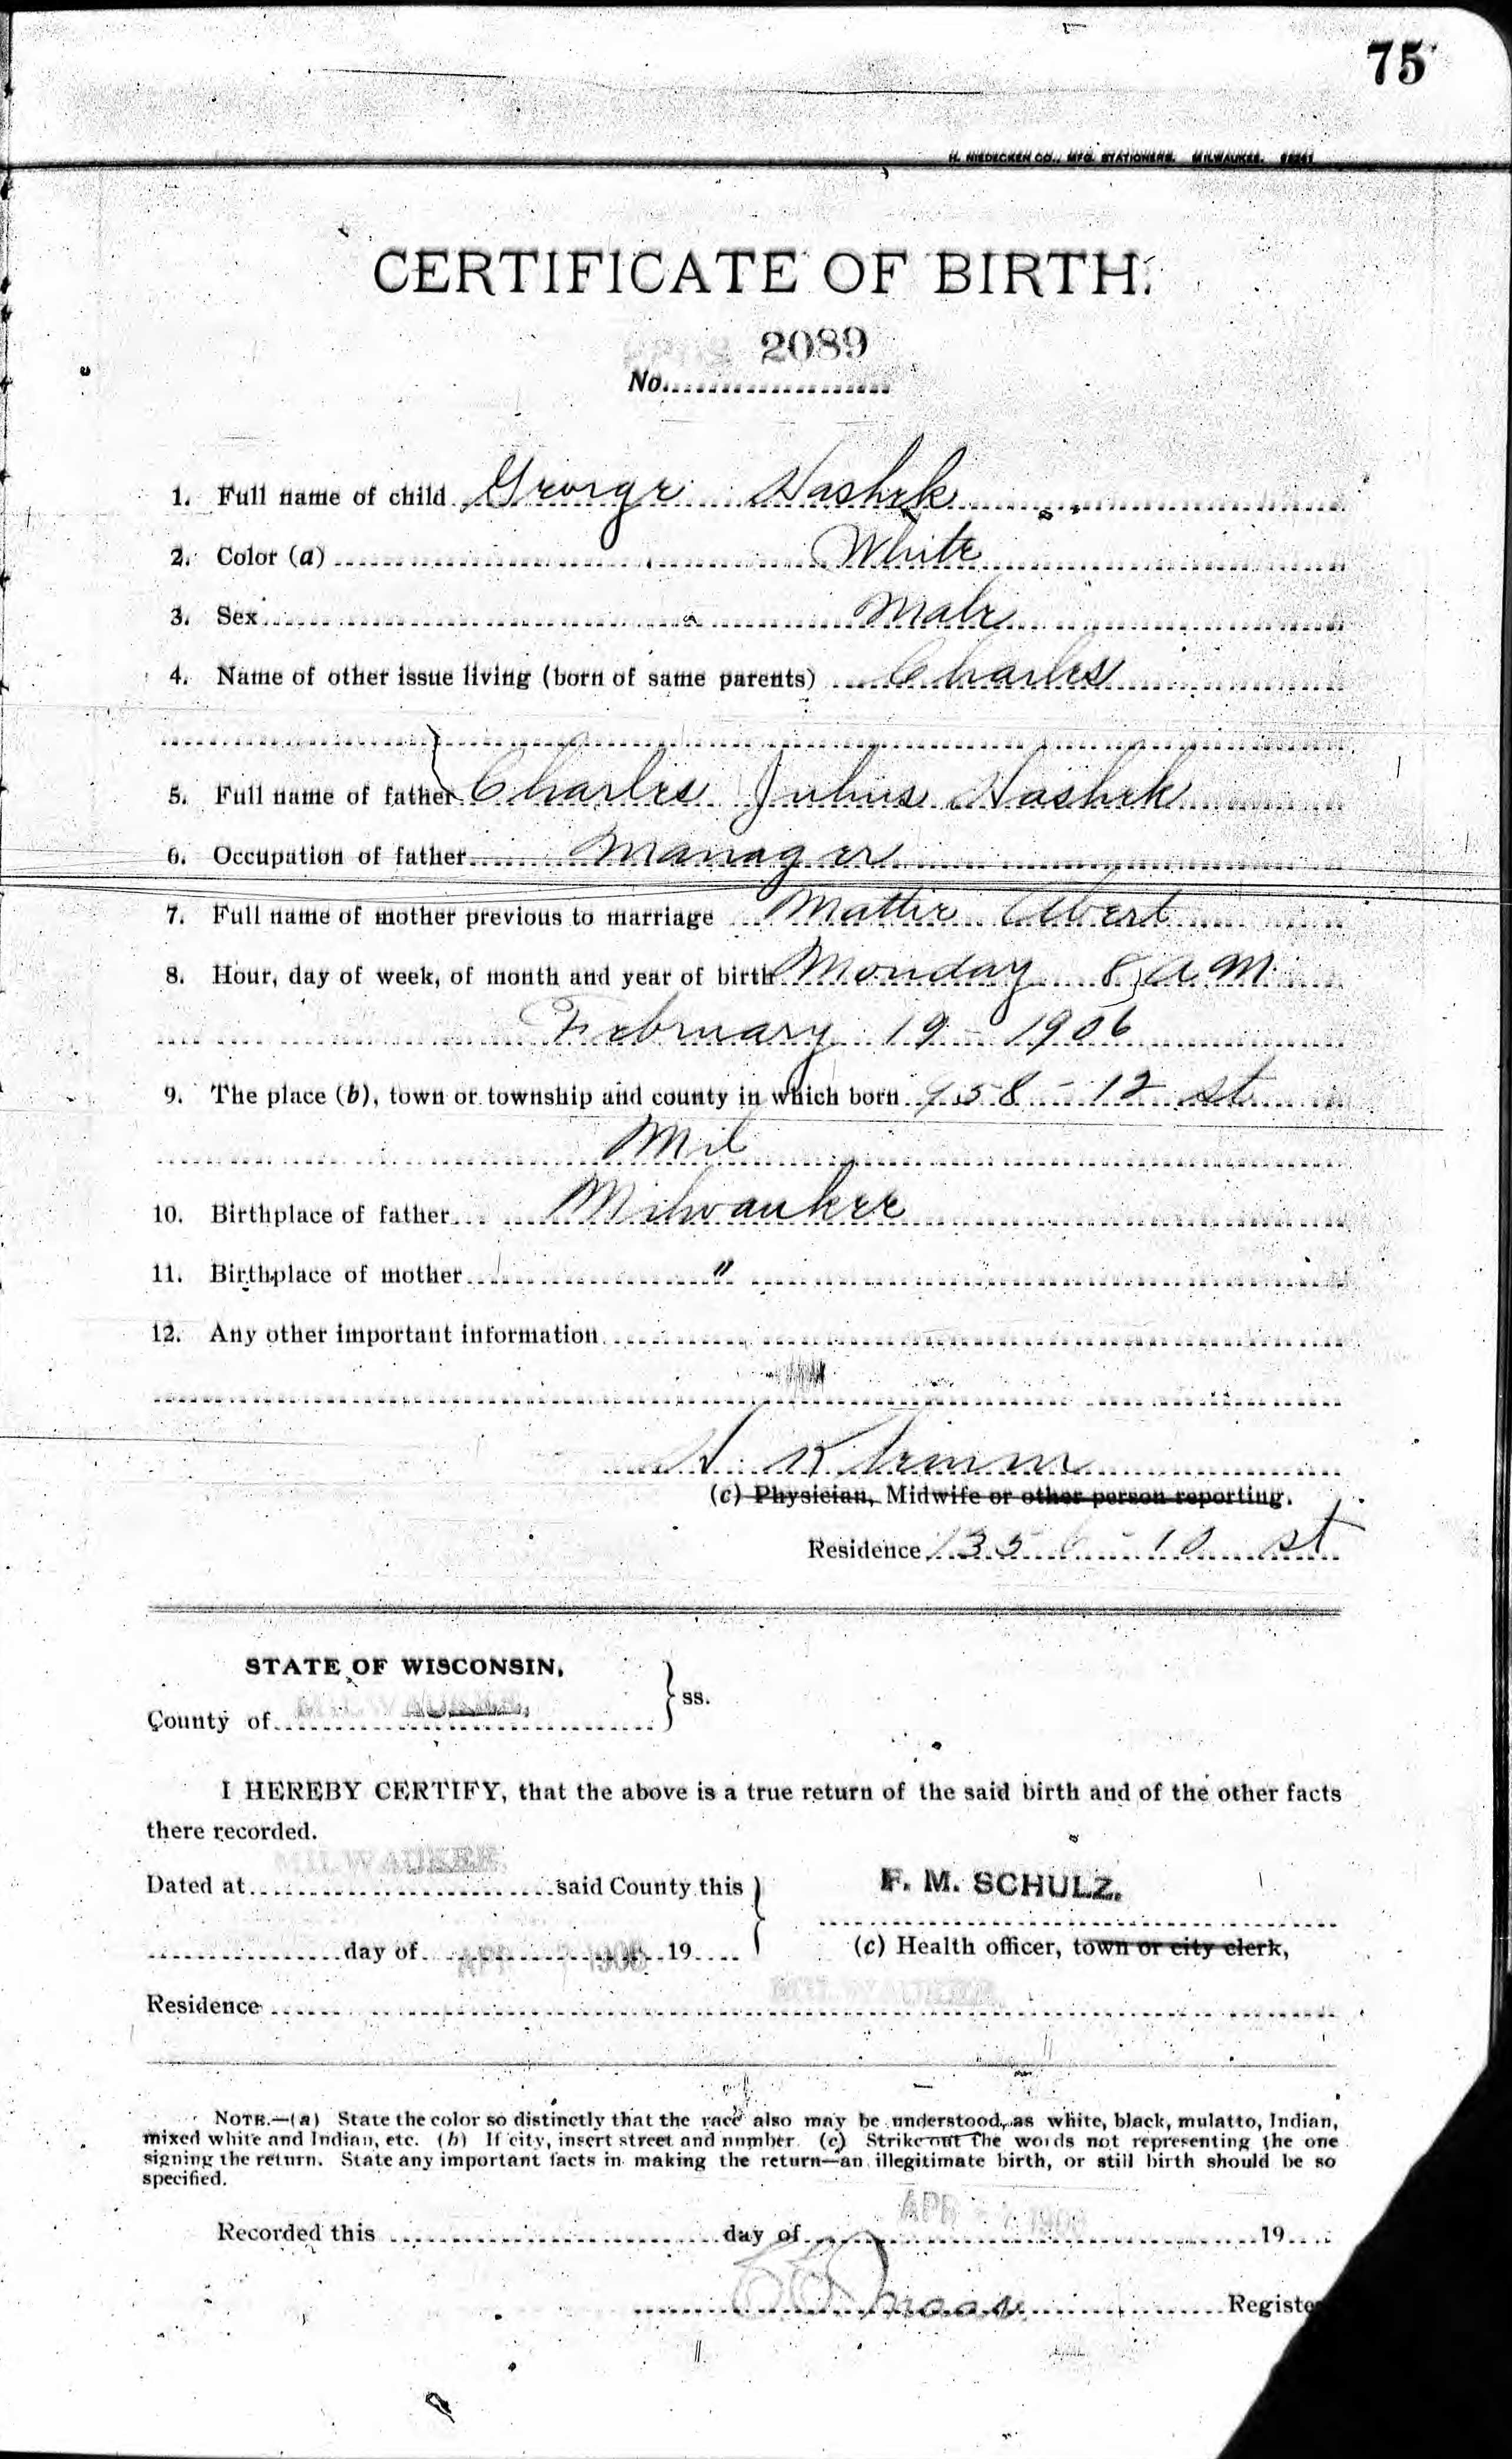 75
H. NIEDECKEN CO., MFG. STATIONERS. MILWAUKEE.
CERTIFICATE OF BIRTH.
2089
No.
1. Full name of child George Hashek
2. Color (a) White
3. Sex Male
4. Name of other issue living (born of same parents) Charles
5. Full name of father Charles Julius Hashek
6. Occupation of father Manager
7. Full name of mother previous to marriage Mattie Albert
8. Hour, day of week, of month and year of birth Monday 8 a M
February 19 - 1906
9. The place (b), town or township and county in which born 958 - 12 st
Mil
10. Birthplace of father Milwaukee
11. Birthplace of mother "
12. Any other important information
(c) Physician, Midwife or other person reporting.
Residence 1356 - 10 st
STATE OF WISCONSIN,
County of MILWAUKEE, } ss.
I HEREBY CERTIFY, that the above is a true return of the said birth and of the other facts
there recorded.
Dated at MILWAUKEE, said County this
F. M. SCHULZ.
day of APR 1906 19
(c) Health officer, town or city clerk,
Residence MILWAUKEE.
NOTE.—(a) State the color so distinctly that the race also may be understood, as white, black, mulatto, Indian,
mixed white and Indian, etc. (b) If city, insert street and number. (c) Strike out the words not representing the one
signing the return. State any important facts in making the return—an illegitimate birth, or still birth should be so
specified.
Recorded this day of APR 1906 19
Registe